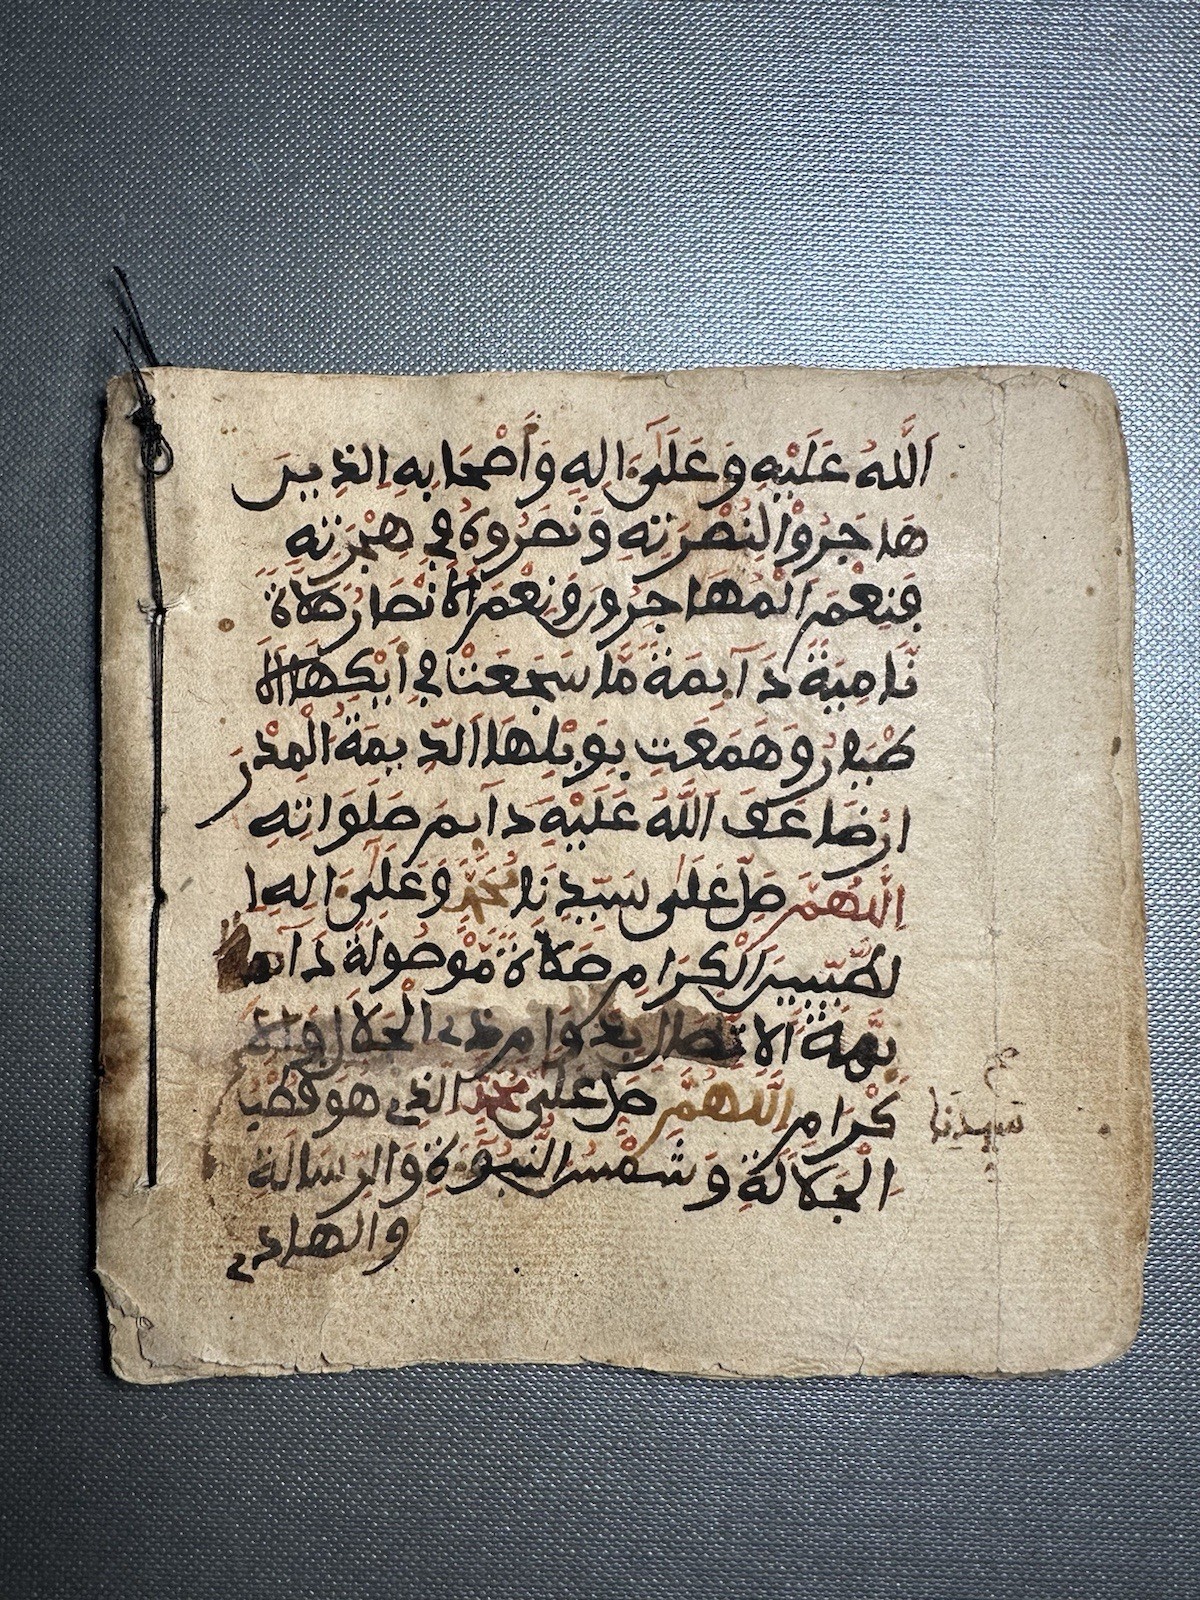 اللهُ عَلَيْهِ وَعَلَىٰ الِهِ وَأَصْحَابِهِ الذِينَ
هَاجَرُوا لِنُصْرَتِهِ وَنَصَرُوهُ فِي هِجْرَتِهِ
فَنِعْمَ الْمُهَاجِرُونَ وَنِعْمَ الأَنْصَارُ صَلاَةً
نَّامِيَةً دَآيِمَةً مَّا سَجَعَتْ فِي أَيْكِهَا الأَ
طْيَارُ وَهَمَعَتْ بِوَبْلِهَا الدِّيمَةُ الْمِدْرَ
ارُ ضَاعَفَ اللَّهُ عَلَيْهِ دَآيِمَ صَلَوَاتِهِ
اللَّهُمَّ صَلِّ عَلَى سَيِّدِنَا مُحَمَّدٍ وَعَلَىٰ الِهِ ا
لطَّيِّبِينَ الْكِرَامِ صَلاَةً مَّوْصُولَةً دَآ
يِمَةَ الاِتِّصَالِ بِدَوَامِ ذِي الْجَلاَلِ وَالإِ
كْرَامِ اللَّهُمَّ صَلِّ عَلَىٰ مُحَمَّدٍ الذِي هُوَ قُطْبُ
سيدنا
الْجَلاَلَةِ وَشَمْسُ النُّبُوَّةِ وَالرِّسَالَةِ
والهادي